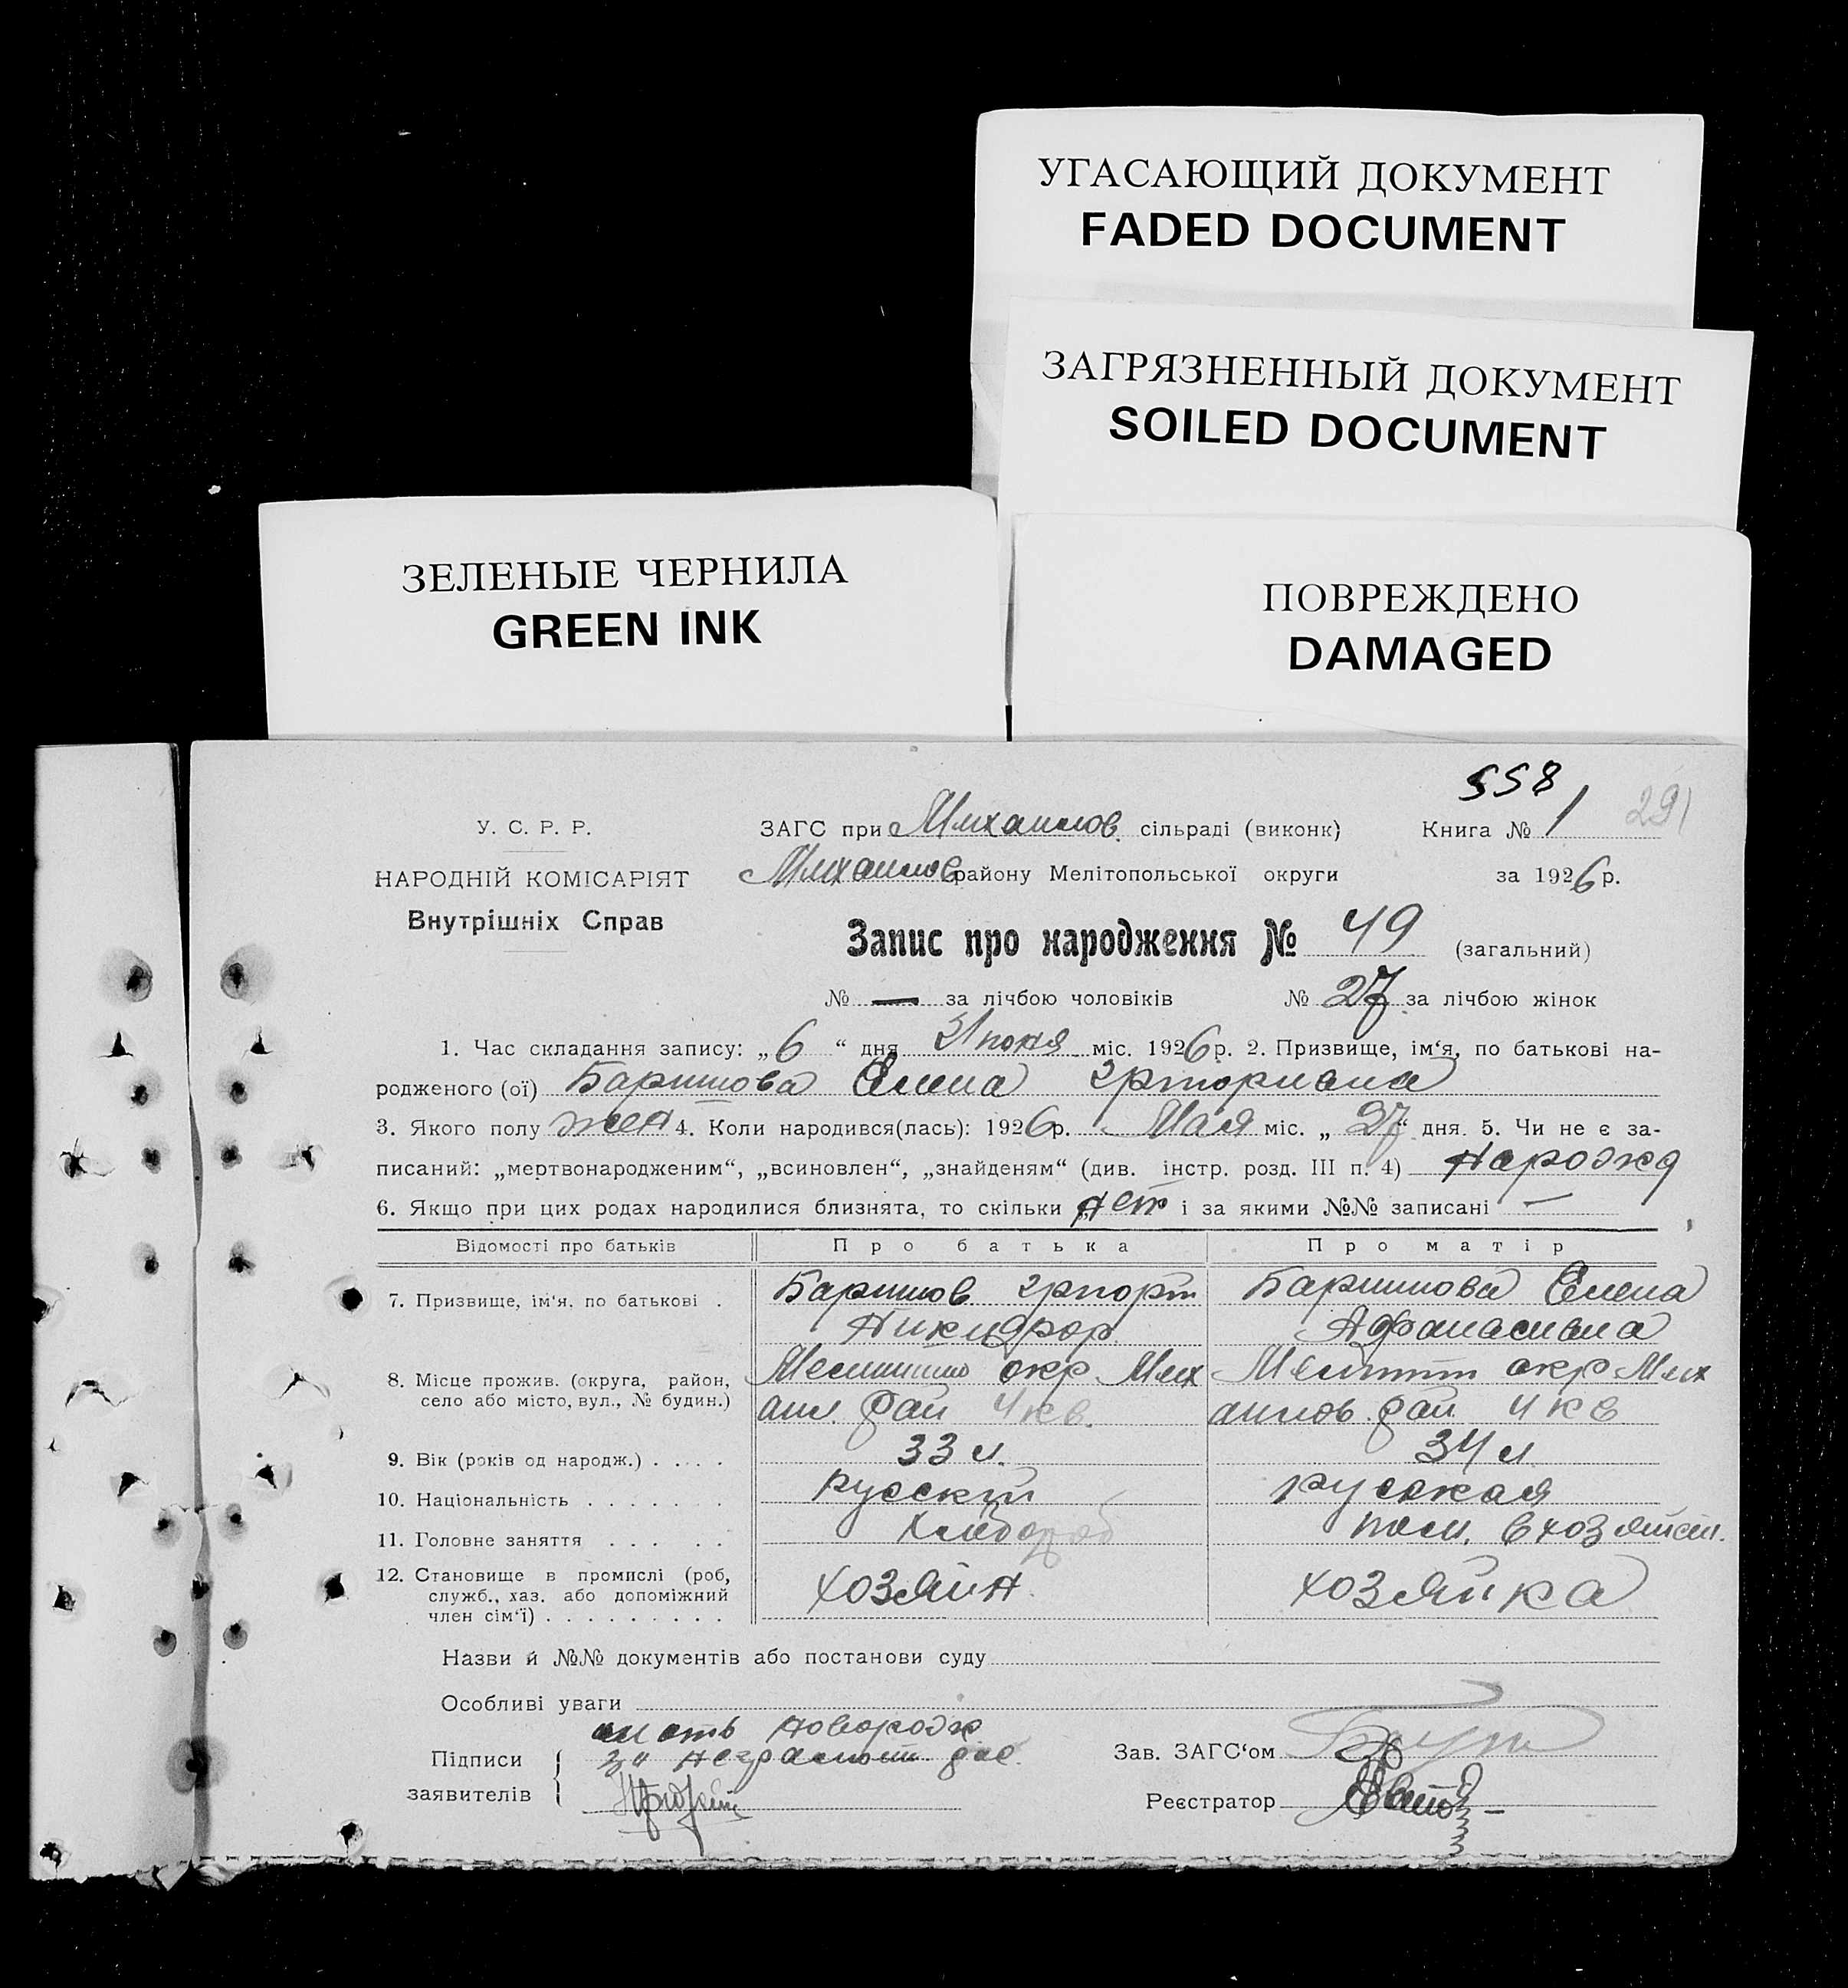 УГАСАЮЩИЙ ДОКУМЕНТ
FADED DOCUMENT
ЗАГРЯЗНЕННЫЙ ДОКУМЕНТ
SOILED DOCUMENT
ЗЕЛЕНЫЕ ЧЕРНИЛА
GREEN INK
ПОВРЕЖДЕНО
DAMAGED
558
У. С. Р. Р.
ЗАГС при Михайлов. сільраді (виконк) Книга № 1 291
НАРОДНІЙ КОМІСАРІЯТ
Михайлов району Мелітопольської округи за 1926 р.
Внутрішніх Справ
Запис про народження № 49 (загальний)
№ — за лічбою чоловіків № 27 за лічбою жінок
1. Час складання запису: „6“ дня Июня міс. 1926 р. 2. Призвище, ім‘я, по батькові на-
родженого (ої) Елена
3. Якого полу жен 4. Коли народився(лась): 1926 р. Мая міс. „27“ дня. 5. Чи не є за-
писаний: „мертвонародженим“, „всиновлен“, „знайденям“ (див. інстр. розд. III п. 4) Нарожд
6. Якщо при цих родах народилися близнята, то скільки нет і за якими №№ записані —
Відомості про батьків Про батька Про матір
7. Призвище, ім‘я, по батькові . Елена
Никифор.
8. Місце прожив. (округа, район, окр. Мих окр. Мих
село або місто, вул., № будин.) рай 4 кв. айлов. рай 4 кв
9. Вік (років од народж.) . . . . 33 л. 34 л
10. Національність . . . . . . . русский русская
11. Головне заняття . . . . . Хлебороб пом. в хозяйст.
12. Становище в промислі (роб, хозяин. хозяйка
служб., хаз. або допоміжний
член сім‘ї) . . . . . . . . .
Назви й №№ документів або постанови суду
Особливі уваги
Підписи
заявителів
Зав. ЗАГС‘ом
Реєстратор